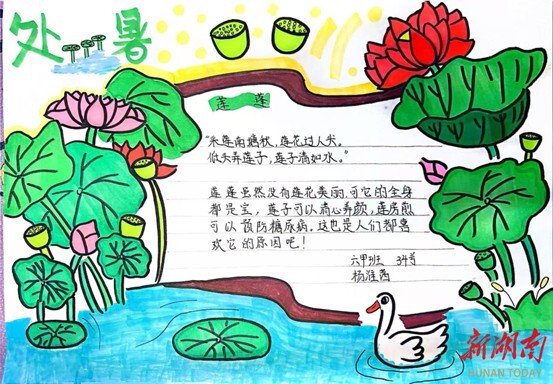 处暑
莲蓬
“采莲南塘秋,莲花过人头。
低头弄莲子,莲子清如水。”
莲蓬虽然没有莲花美丽,可它的全身
都是宝,莲子可以清心养颜,莲房煎
可以预防糖尿病,这也是人们都喜
欢它的原因吧!
六甲班 34号
杨淮茜
新湖南
HUNAN TODAY